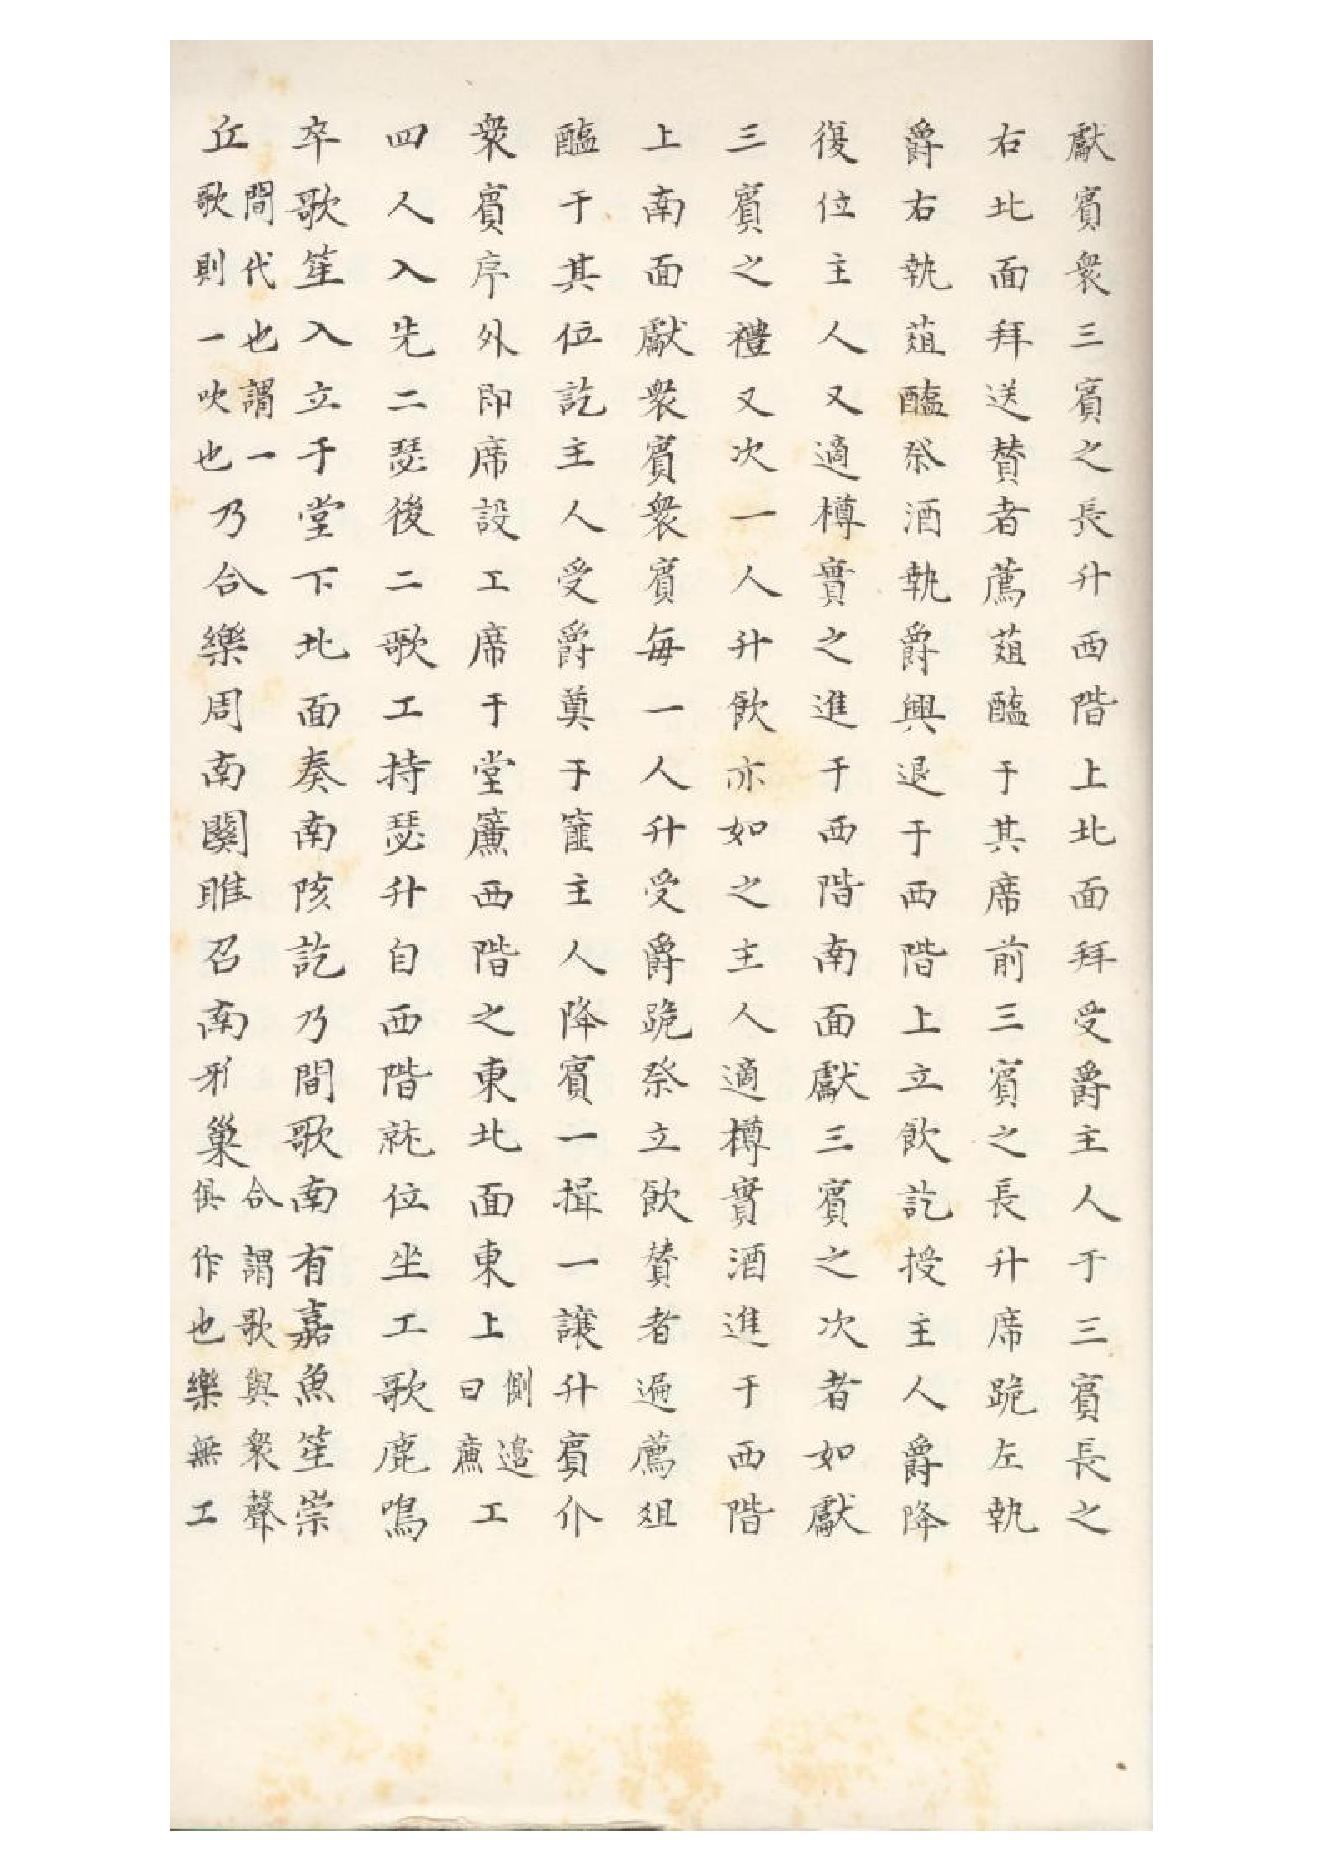 獻賓衆三賓之長升西階上北面拜受爵主人于三賓長之
右北面拜送賛者薦葅醢于其席前三賓之長升席跪左執
爵右執葅醢祭酒執爵興退于西階上立飲訖授主人爵降
復位主人又適樽實之進于西階南面獻三賓之次者如獻
三賓之禮又次一人升飲亦如之主人適樽實酒進于西階
上南面獻衆賓衆賓每一人升受爵跪祭立飲賛者遍薦俎
醢于其位訖主人受爵奠于篚主人降賓一揖一讓升賓介
衆賓序外即席設工席于堂簾西階之東北面東上側邊曰廉工
四人入先二瑟後二歌工持瑟升自西階就位坐工歌鹿鳴
卒歌笙入立于堂下北面奏南陔訖乃間歌南有嘉魚笙崇
丘間代也謂一歌則一吹也乃合樂周南關雎召南雅巢合謂歌與衆聲俱作也樂無工